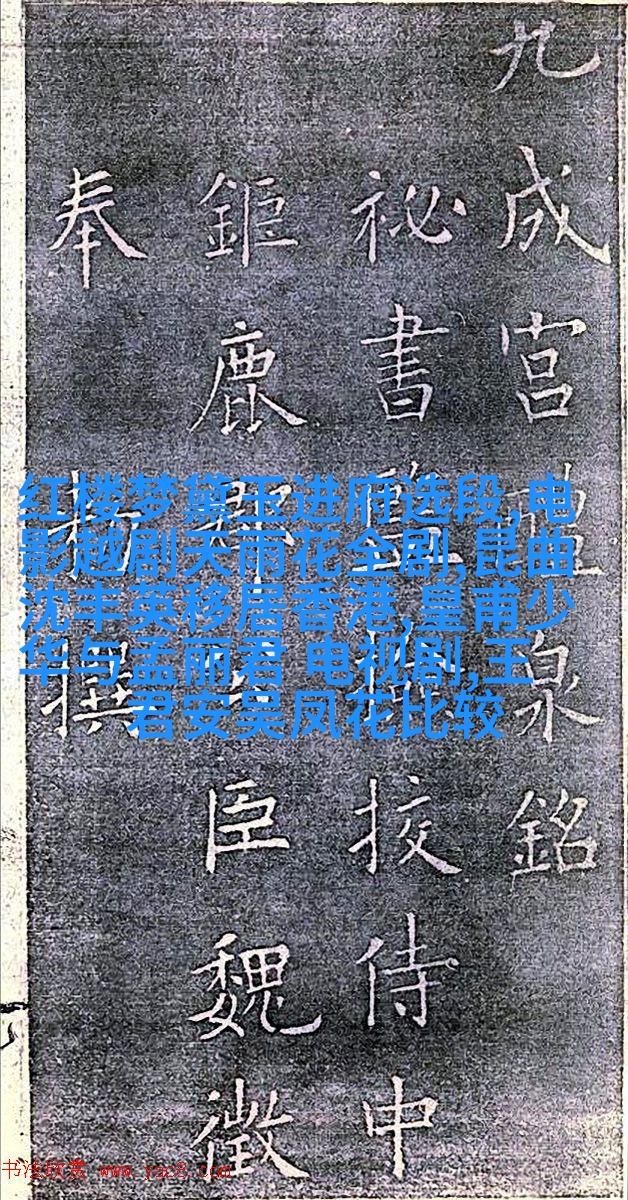 九成宮醴泉銘
祕書監挍侍中
鉅鹿郡臣魏徵
奉撰
红楼梦黛玉进府选段,电
影越剧天雨花全剧,昆曲
沈丰英移居香港,皇甫少
华与孟丽君 电视剧,王
君安吴凤花比较
书法欣赏 www.yac8.com